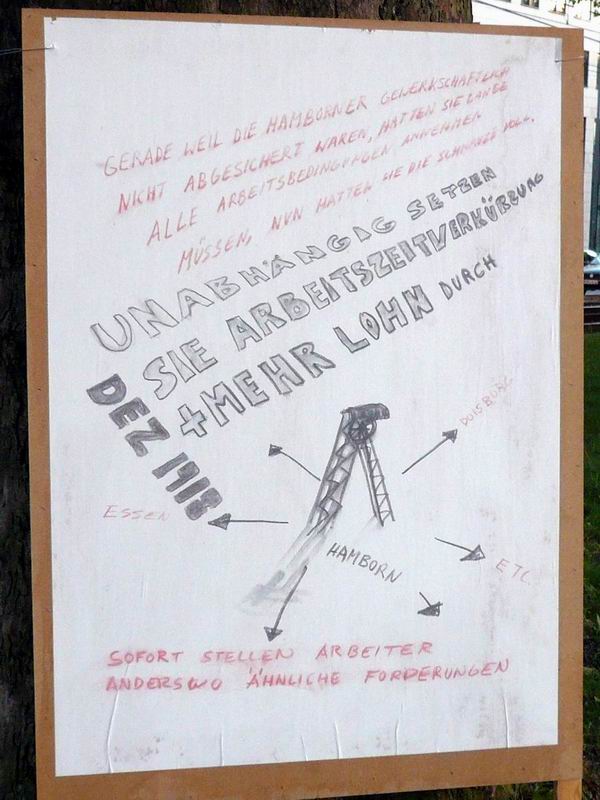 GERADE WEIL DIE HAMBORNER GEWERKSCHAFTLICH
NICHT ABGESICHERT WAREN, HATTEN SIE LANGE
ALLE ARBEITSBEDINGUNGEN ANNEHMEN
MÜSSEN, NUN HATTEN SIE DIE SCHNAUZE VOLL.
UNABHÄNGIG SETZEN
SIE ARBEITSZEITVERKÜRZUNG
+ MEHR LOHN DURCH
DEZ 1918
DUISBURG
ESSEN
HAMBORN
ETC.
SOFORT STELLEN ARBEITER
ANDERSWO ÄHNLICHE FORDERUNGEN